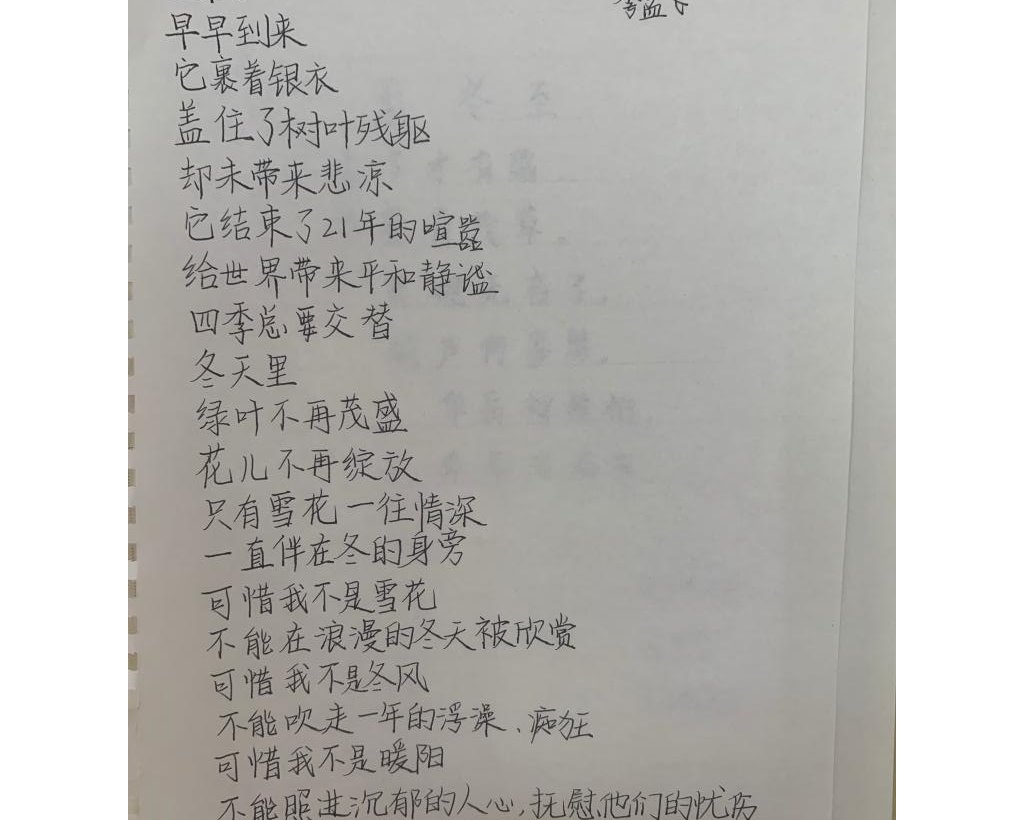 早早到来
它裹着银衣
盖住了树叶残躯
却未带来悲凉
它结束了21年的喧嚣
给世界带来平和静谧
四季总要交替
冬天里
绿叶不再茂盛
花儿不再绽放
只有雪花一往情深
一直伴在冬的身旁
可惜我不是雪花
不能在浪漫的冬天被欣赏
可惜我不是冬风
不能吹走一年的浮澡、痴狂
可惜我不是暖阳
不能照进沉郁的人心,抚慰他们的忧伤